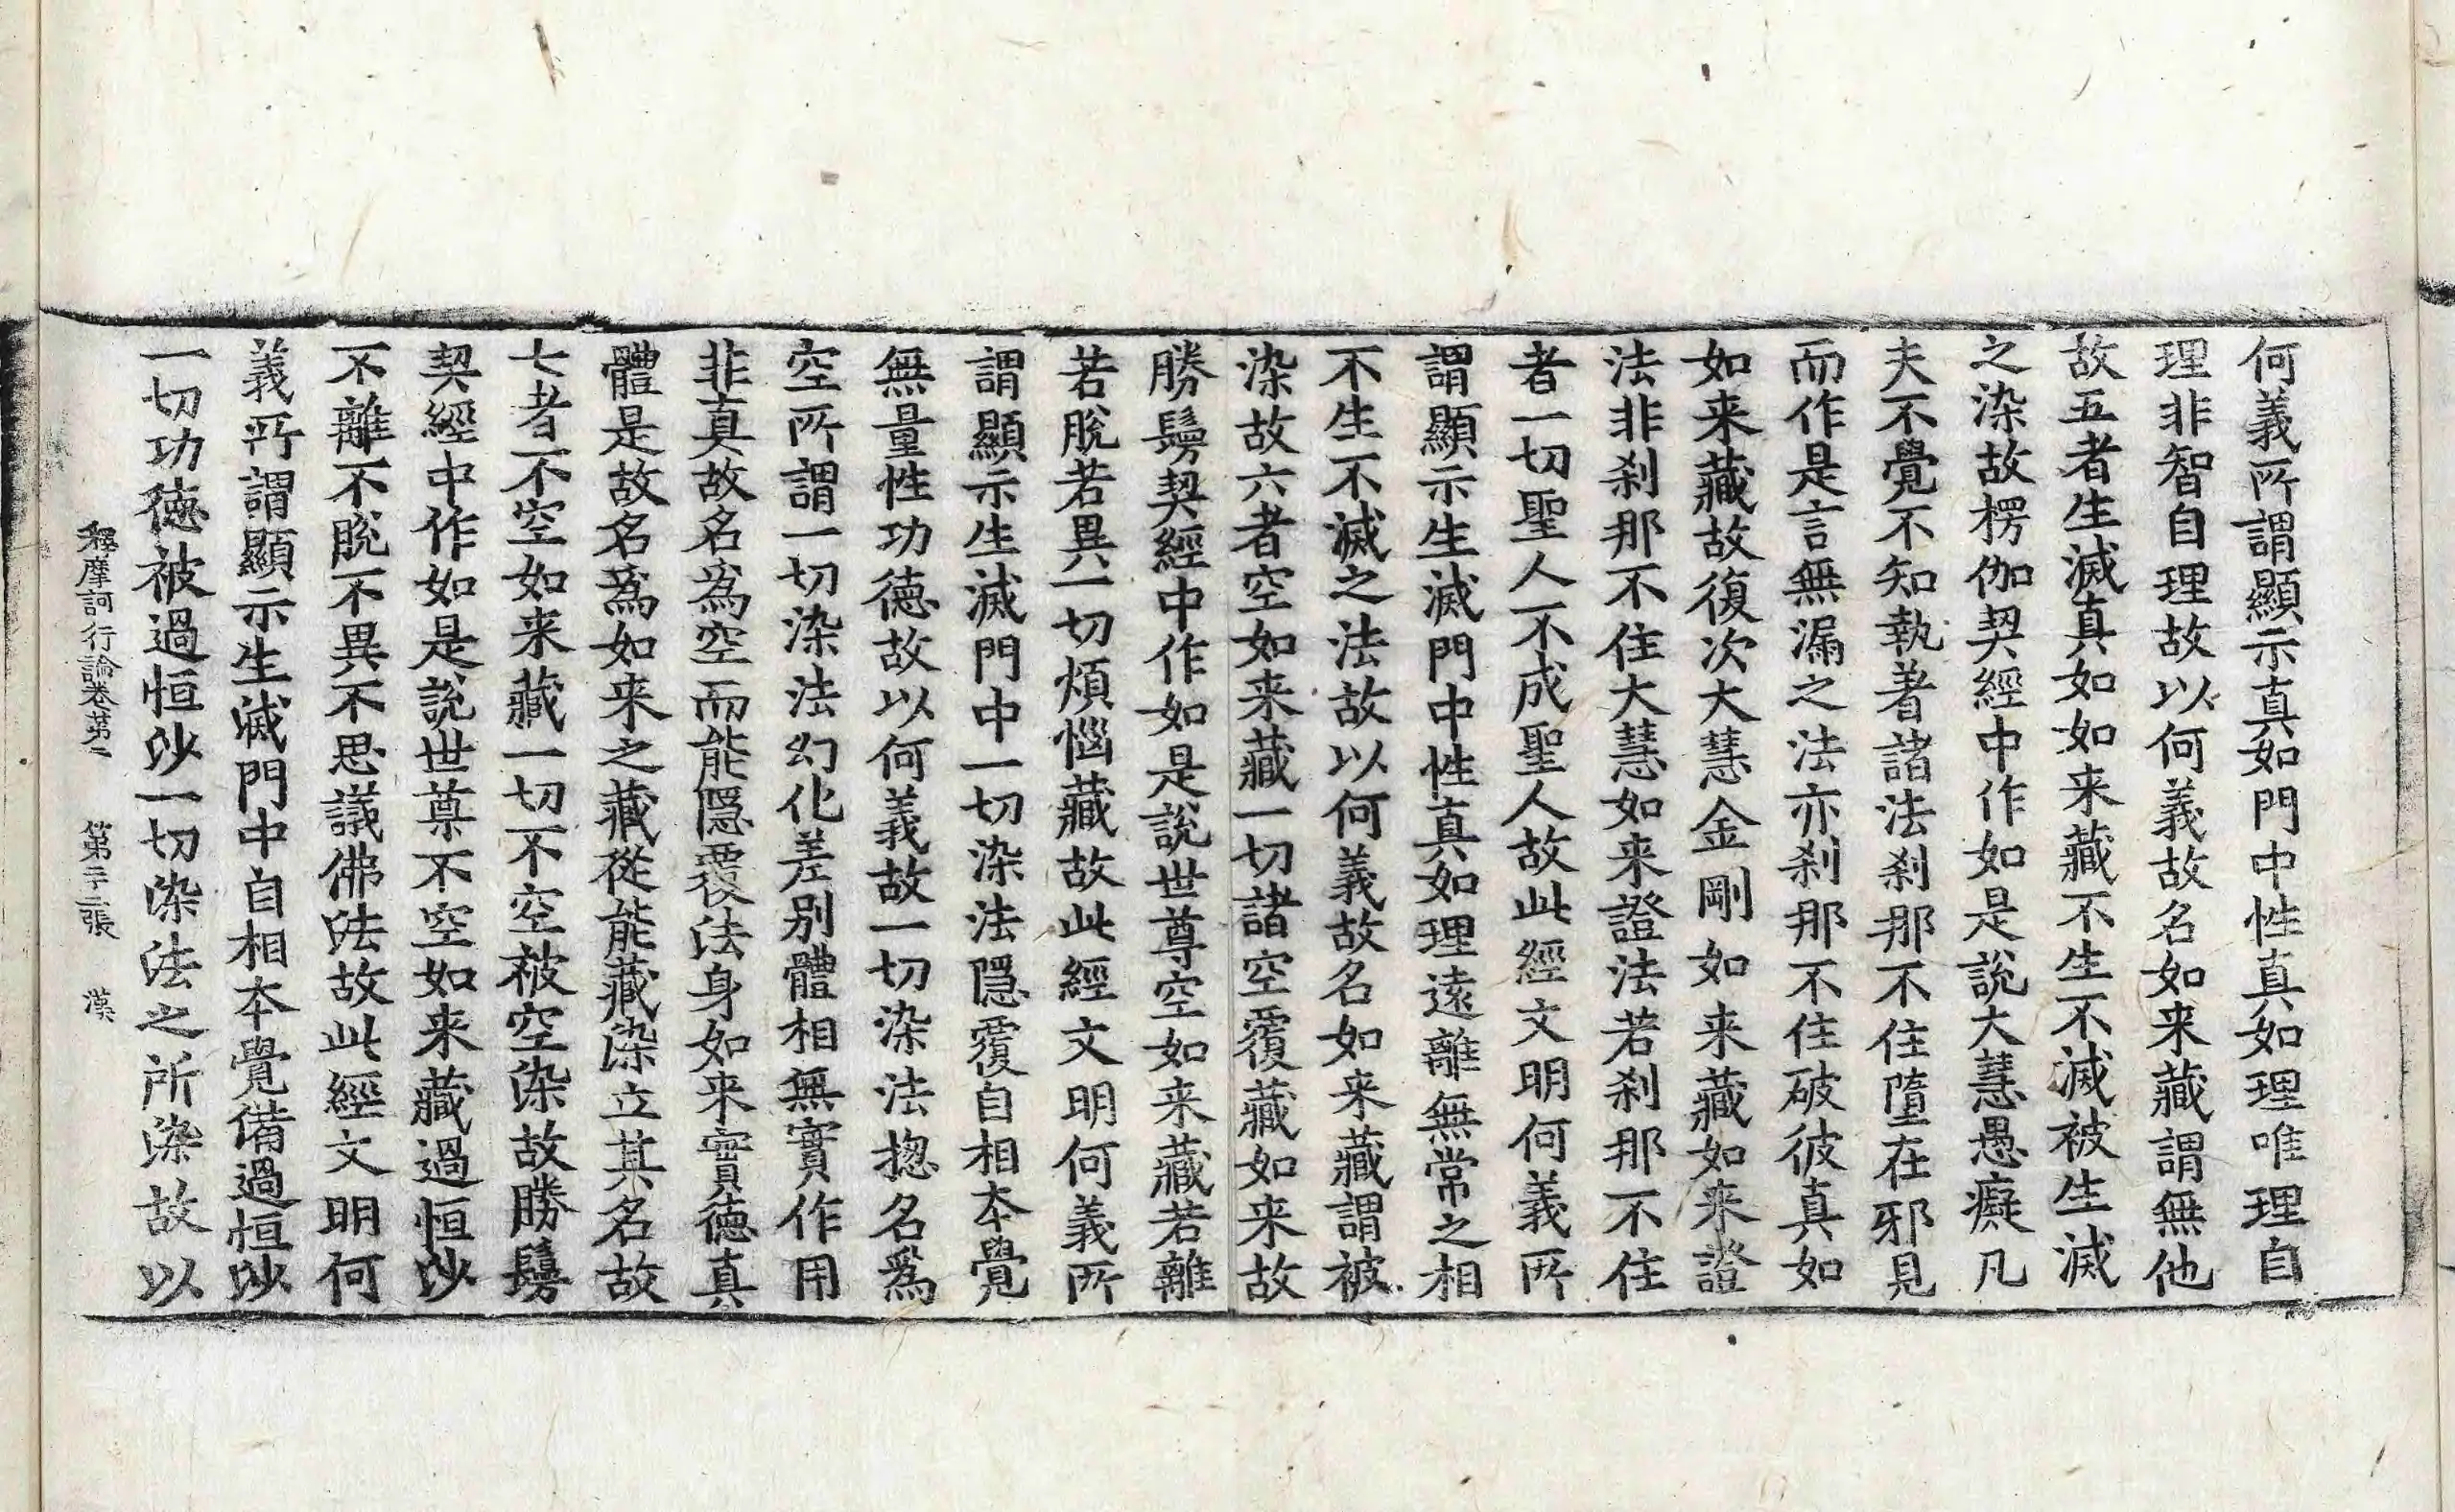 何義所謂顯示真如門中性真如理唯理自
理非智自理故以何義故名如来藏謂無他
故五者生滅真如如来藏不生不滅被生滅
之染故楞伽契經中作如是說大慧愚癡凡
夫不覺不知執著諸法刹那不住墮在邪見
而作是言無漏之法亦刹那不住破彼真如
如来藏故復次大慧金剛如来藏如来證
法非刹那不住大慧如来證法若刹那不住
者一切聖人不成聖人故此經文明何義所
謂顯示生滅門中性真如理遠離無常之相
不生不滅之法故以何義故名如来藏謂被
染故六者空如来藏一切諸空覆藏如来故
勝鬘契經中作如是說世尊空如来藏若離
若脫若異一切煩惱藏故此經文明何義所
謂顯示生滅門中一切染法隱覆自相本覺
無量性功德故以何義故一切染法揔名爲
空所謂一切染法法幻化差別體相無實作用
非真故名爲空而能隱覆法身如来實德真
體是故名爲如来之藏從能藏染立其名故
七者不空如来藏一切不空被空染故勝鬘
契經中作如是說世尊不空如来藏過恒沙
不離不脫不異不思議佛法故此經文明何
義所謂顯示生滅門中自相本覺備過恒沙
一切功德被過恒沙一切染法之所染故以
釋摩訶衍論卷第二　第二十二張　漢